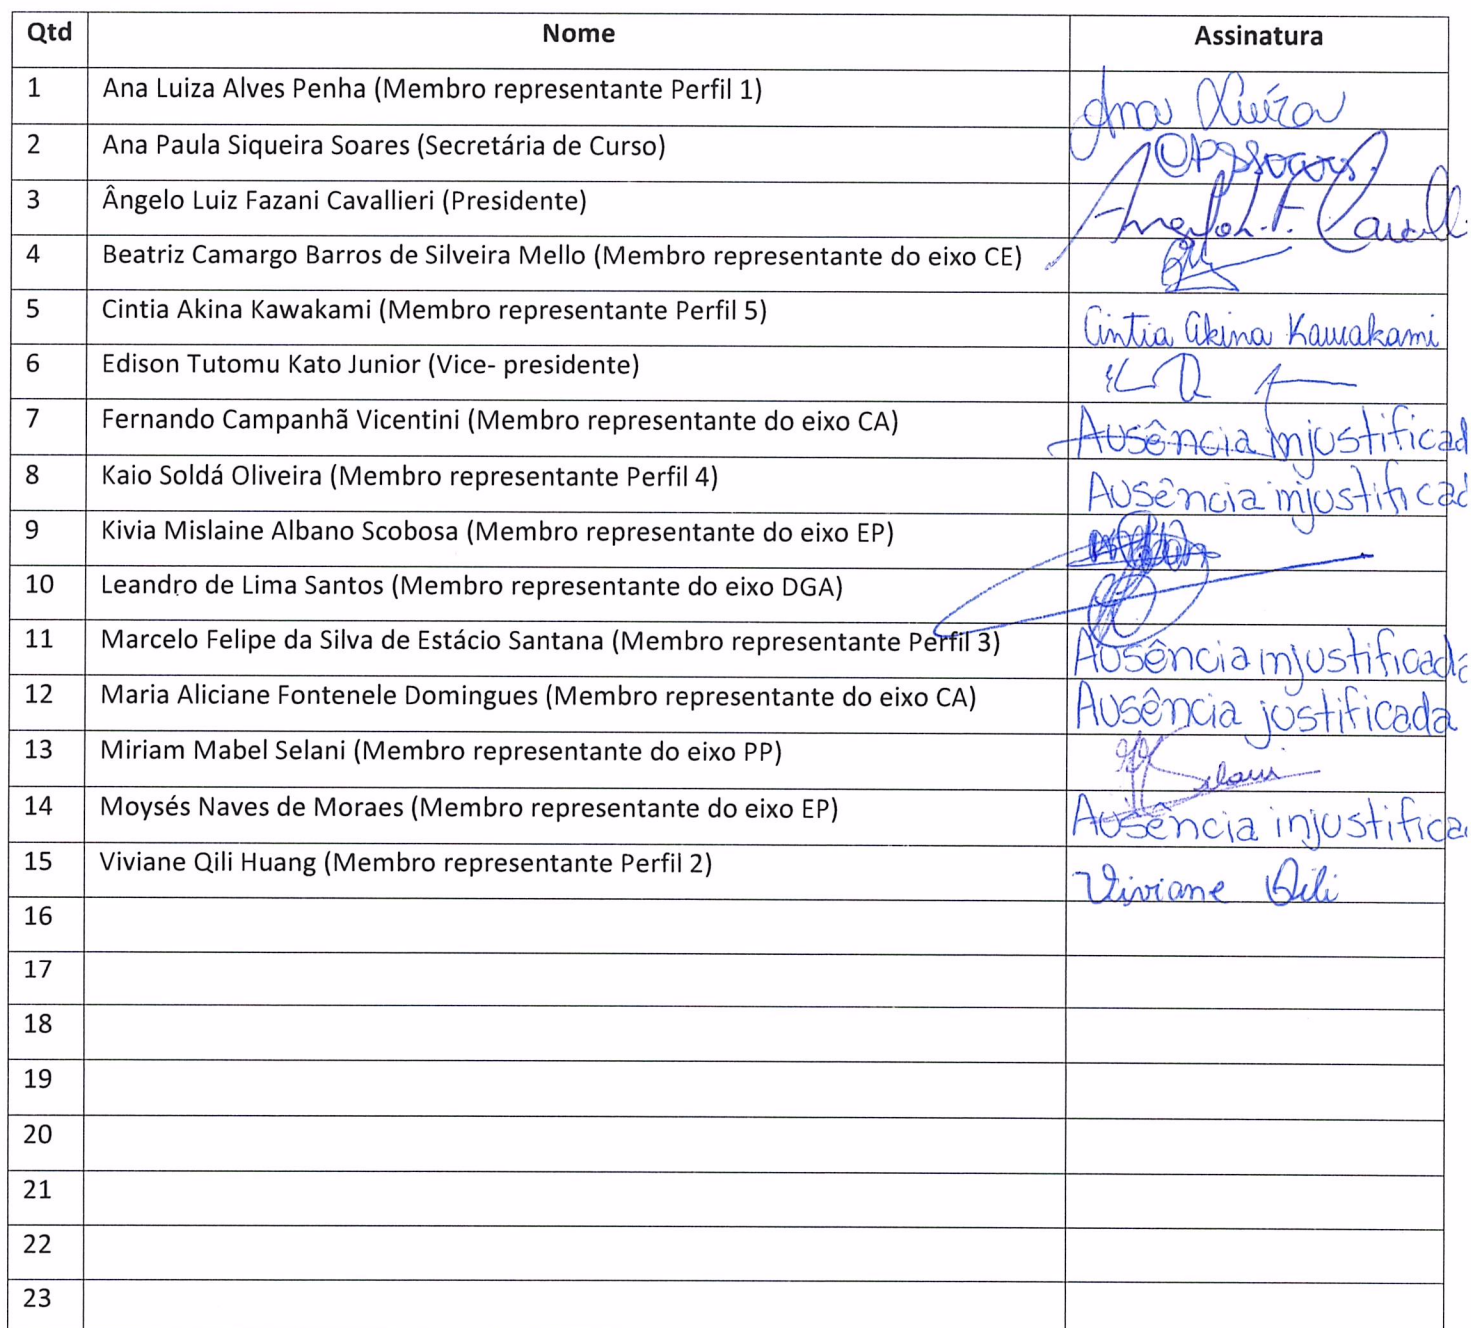 Qtd Nome Assinatura
1 Ana Luiza Alves Penha (Membro representante Perfil 1) Ana Luiza
2 Ana Paula Siqueira Soares (Secretária de Curso) APSSoares
3 Ângelo Luiz Fazani Cavallieri (Presidente) Angelo L. F. Cavalli
4 Beatriz Camargo Barros de Silveira Mello (Membro representante do eixo CE)
5 Cintia Akina Kawakami (Membro representante Perfil 5) Cintia Akina Kawakami
6 Edison Tutomu Kato Junior (Vice- presidente)
7 Fernando Campanhã Vicentini (Membro representante do eixo CA) Ausência injustificad
8 Kaio Soldá Oliveira (Membro representante Perfil 4) Ausência injustificad
9 Kivia Mislaine Albano Scobosa (Membro representante do eixo EP)
10 Leandro de Lima Santos (Membro representante do eixo DGA)
11 Marcelo Felipe da Silva de Estácio Santana (Membro representante Perfil 3) Ausência injustificada
12 Maria Aliciane Fontenele Domingues (Membro representante do eixo CA) Ausência justificada
13 Miriam Mabel Selani (Membro representante do eixo PP) Selani
14 Moysés Naves de Moraes (Membro representante do eixo EP) Ausência injustifica
15 Viviane Qili Huang (Membro representante Perfil 2) Viviane Qili
16
17
18
19
20
21
22
23